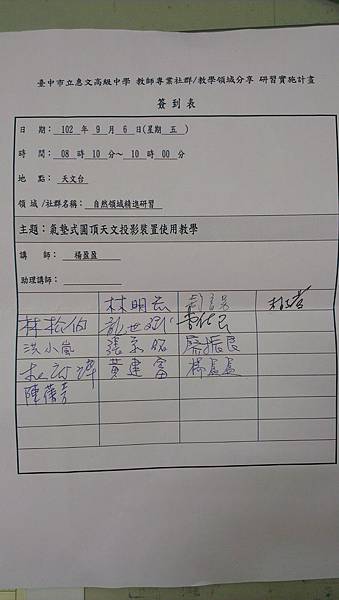 臺中市立惠文高級中學 教師專業社群/教學領域分享 研習實施計畫
簽到表
日 期: 102 年 9 月 6 日(星期 五 )
時 間: 08 時 10 分~ 10 時 00 分
地 點: 天文台
領域/社群名稱: 自然領域精進研習
主題:氣墊式圓頂天文投影裝置使用教學
講 師: 楊盈盈
助理講師:
林明宏
林松伯
洪小嵐 張京昭 廖振良
黃建富 楊盈盈